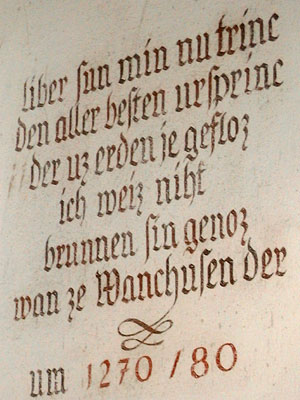 liber sun min nu trinc
den aller besten ursprinc
der uz erden je gefloz
ich weiz niht
brunnen sin genoz
wan ze Wanchusen der
um 1270/80